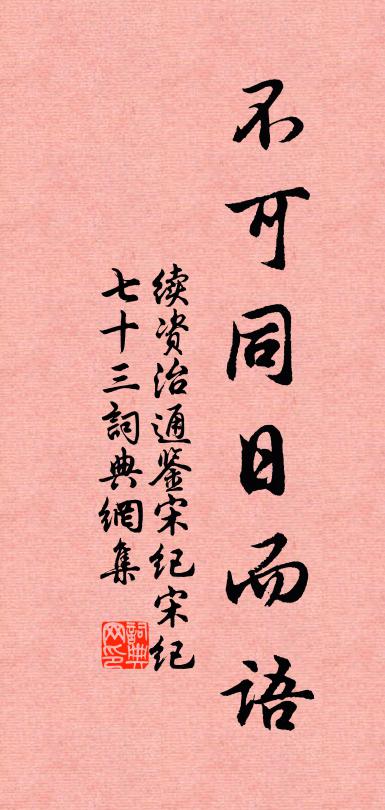 不可同日而語
续资治通鉴宋纪宋纪
七十三詞典網集
詞典网印